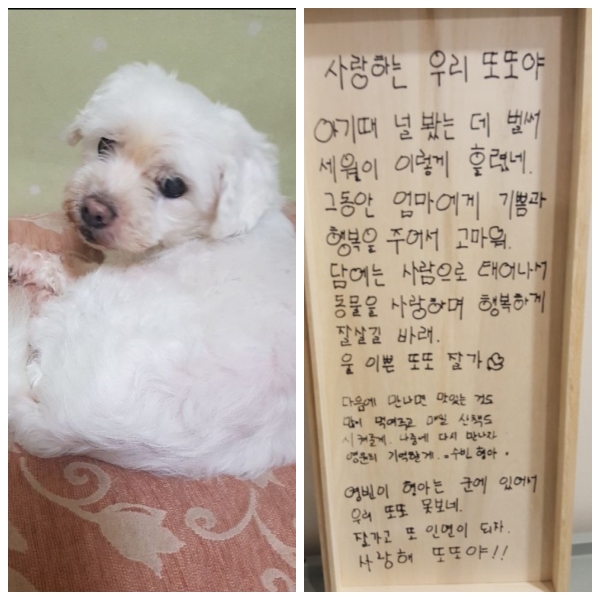 사랑하는 우리 또또야
아기때 널 봤는 데 벌써
세월이 이렇게 흘렀네.
그동안 엄마에게 기쁨과
행복을 주어서 고마워.
담에는 사람으로 태어나서
동물을 사랑하며 행복하게
잘살길 바래.
울 이쁜 또또 잘가
다음에 만나면 맛있는 것도
많이 먹여주고 매일 산책도
시켜줄게. 나중에 다시 만나자
영원히 기억할게. 수빈 형아
영빈이 형아는 군에 있어서
우리 또또 못보네.
잘가고 또 인연이 되자.
사랑해 또또야!!